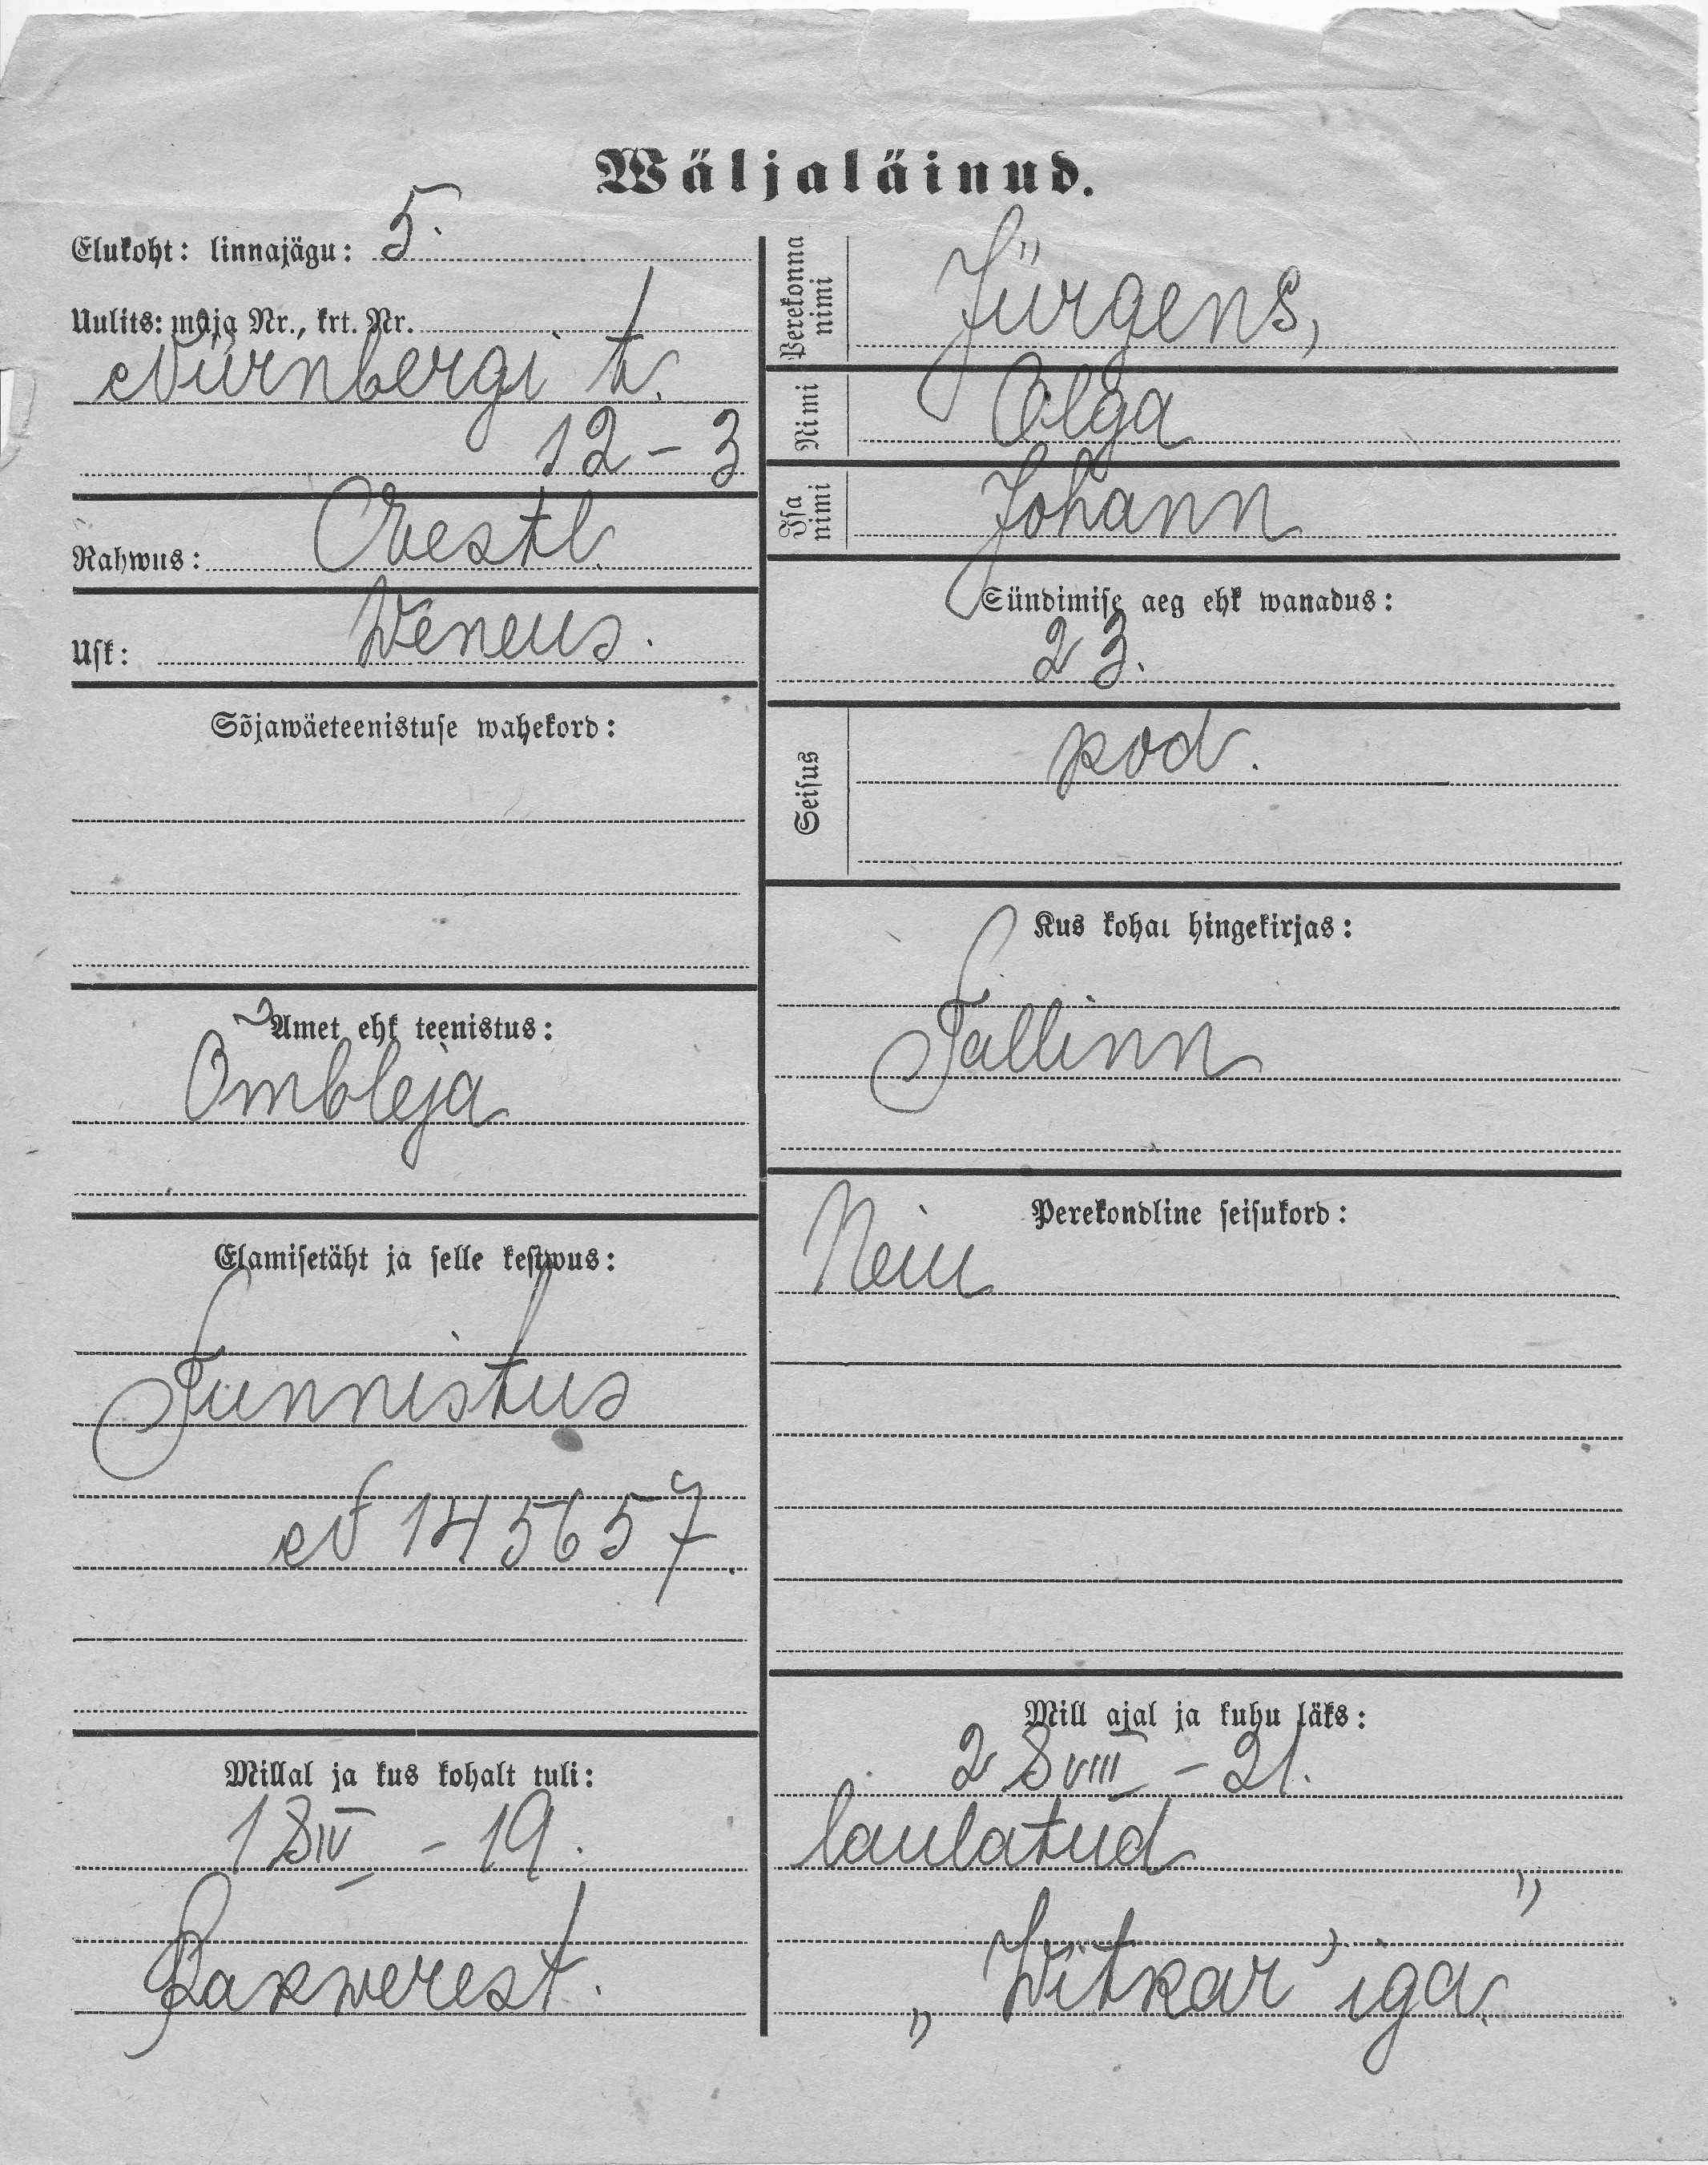 Wäljaläinud.
Elukoht: linnajägu: 5.
Uulits: maja Nr., krt. Nr.
Nürnbergi t.
12 – 3
Rahwus: Eestl.
Usk: Weneus.
Sõjawäeteenistuse wahekord:
Amet ehk teenistus:
Õmbleja
Elamisetäht ja selle kestwus:
Tunnistus
N 145657.
Millal ja kus kohalt tuli:
18 IV – 19.
Rakwerest.
Perekonna nimi
Jürgens,
Nimi
Olga
Isa nimi
Johann
Sündimise aeg ehk wanadus:
23.
Seisus
pod.
Kus kohal hingekirjas:
Tallinn
Perekondline seisukord:
Neiu
Mill ajal ja kuhu läks:
28 VIII – 21.
laulatud
„Witkar'iga"